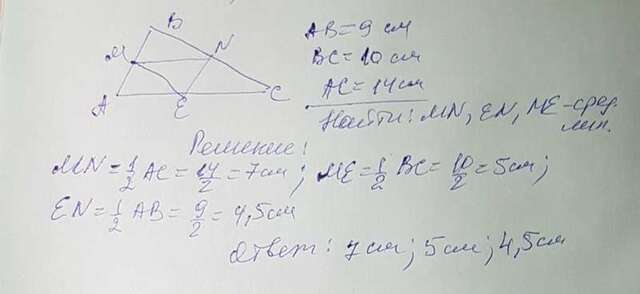 B
AB = 9 см
M N
BC = 10 см
AC = 14 см
A E C
Найти: MN, EN, ME - сред. лин.
Решение:
MN = 1/2 AC = 14/2 = 7 см; ME = 1/2 BC = 10/2 = 5 см;
EN = 1/2 AB = 9/2 = 4,5 см
Ответ: 7 см; 5 см; 4,5 см